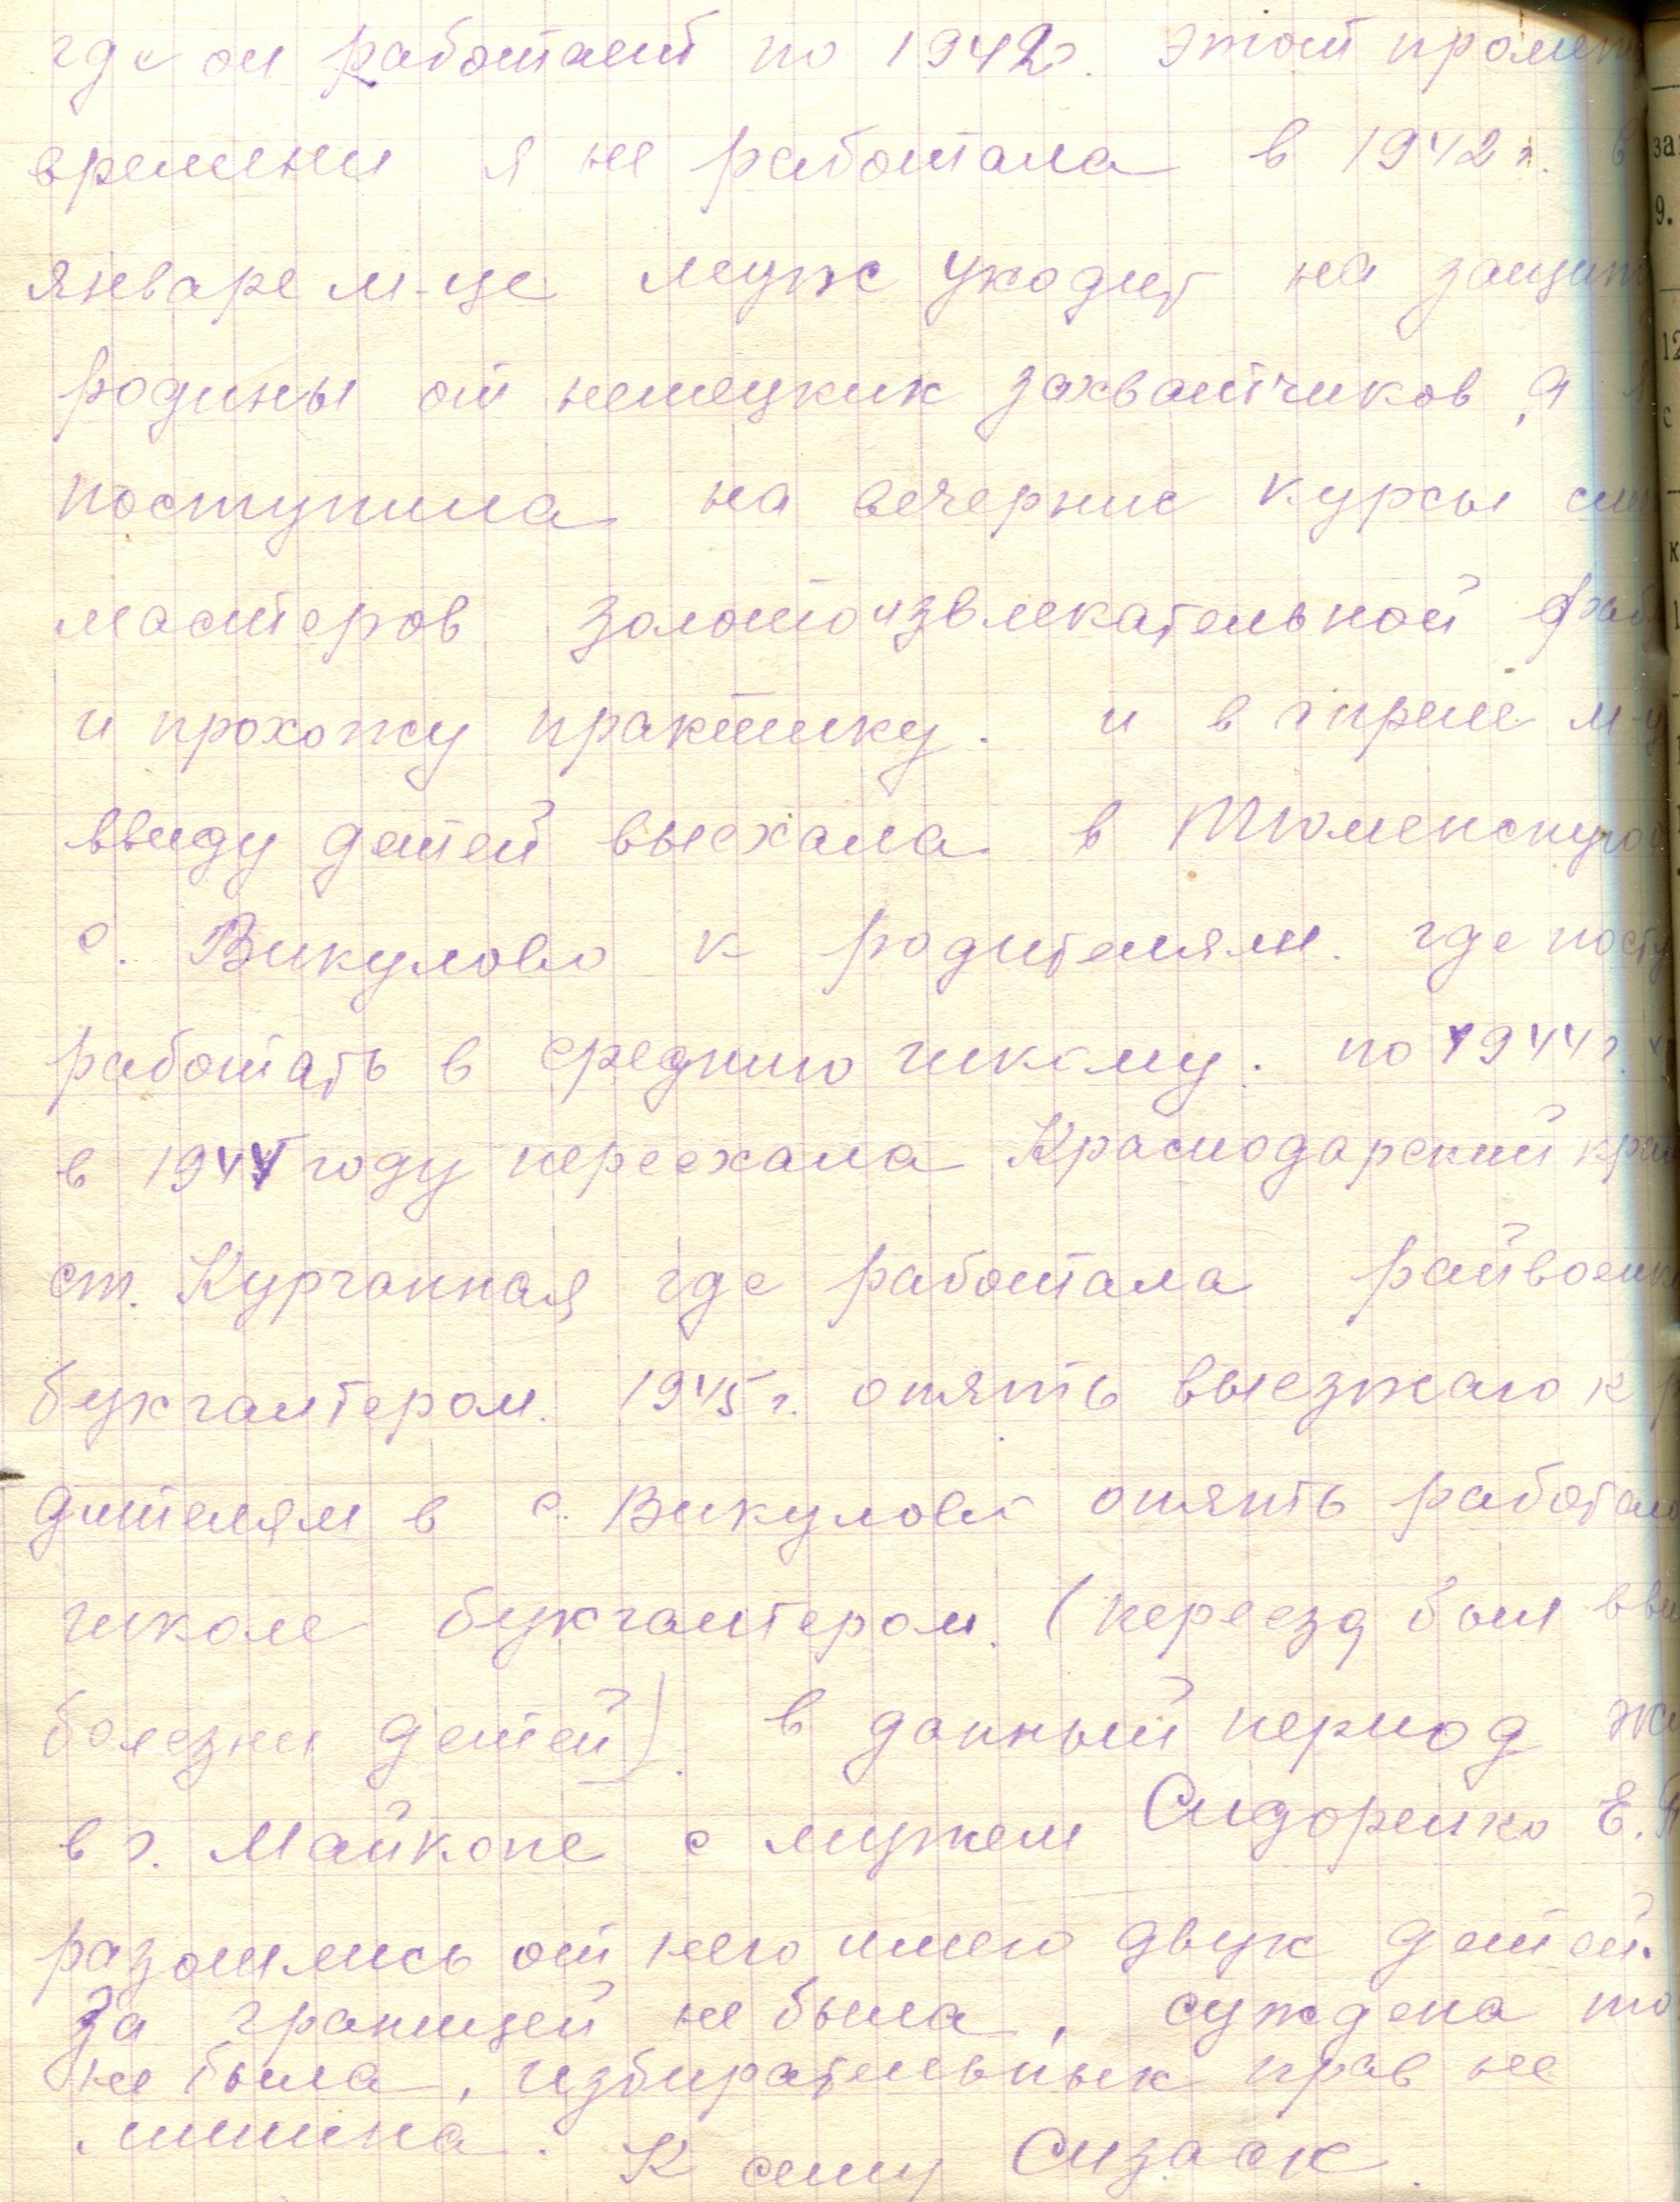 где он работает по 1942г. этот промеж
времени я не работала в 1942 г. в
январе м-це муж уходит на защит
родины от немецких захватчиков, я
поступила на вечерние курсы
мастеров золотоизвлекательной фаб
и прохожу практику. и в апреле м-ц
ввиду детей выехала в Тюменскую
с. Викулово к родителям. где посту
работать в среднюю школу. по 1944г.
в 1944 году переехала Краснодарский край
ст. Курганная где работала райвоенк
бухгалтером. 1945 г. опять выезжаю к р
дителям в с. Викулово опять работаю
школе бухгалтером. (переезд был вви
болезни детей). в данный период жи
в г. Майкопе с мужем Сидоренко Е.
разошлись от него имею двух детей.
За границей не была, суждена то
не была, избирательных прав не
лишина. К сему Сизаск
за
9.
12
с
к